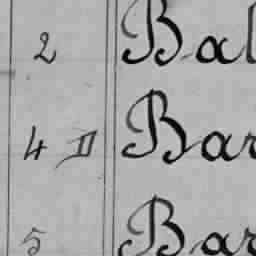 2 Bal
4 II Bar
5 Bar